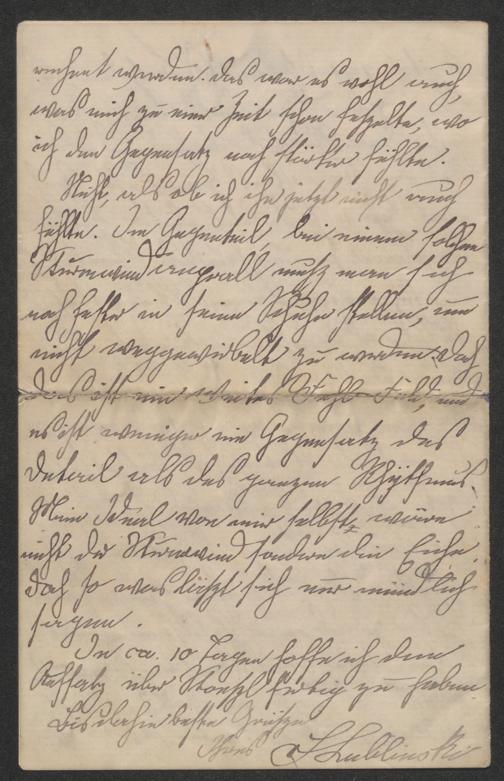 rechnet werden. Das war es wohl auch,
was mich zu einer Zeit schon fesselte, wo
ich den Gegensatz noch stärker fühlte.
Nicht, als ob ich ihn jetzt nicht auch
fühlte. Im Gegenteil, bei einem solchen
Sturmwindanprall muß man sich
noch fester in seine Schuhe stellen, um
nicht weggewirbelt zu werden. Doch
das ist ein weites Feld, und
es ist weniger ein Gegensatz des
Detail als des ganzen Rhythmus.
Mein Ideal von mir selbst wäre
nicht der Sturmwind sondern die Eiche.
Doch so was läßt sich nur mündlich
sagen.
In ca. 10 Tagen hoffe ich den
Aufsatz über fertig zu haben.
Bis dahin beste Grüße
Ihres S. Lublinski